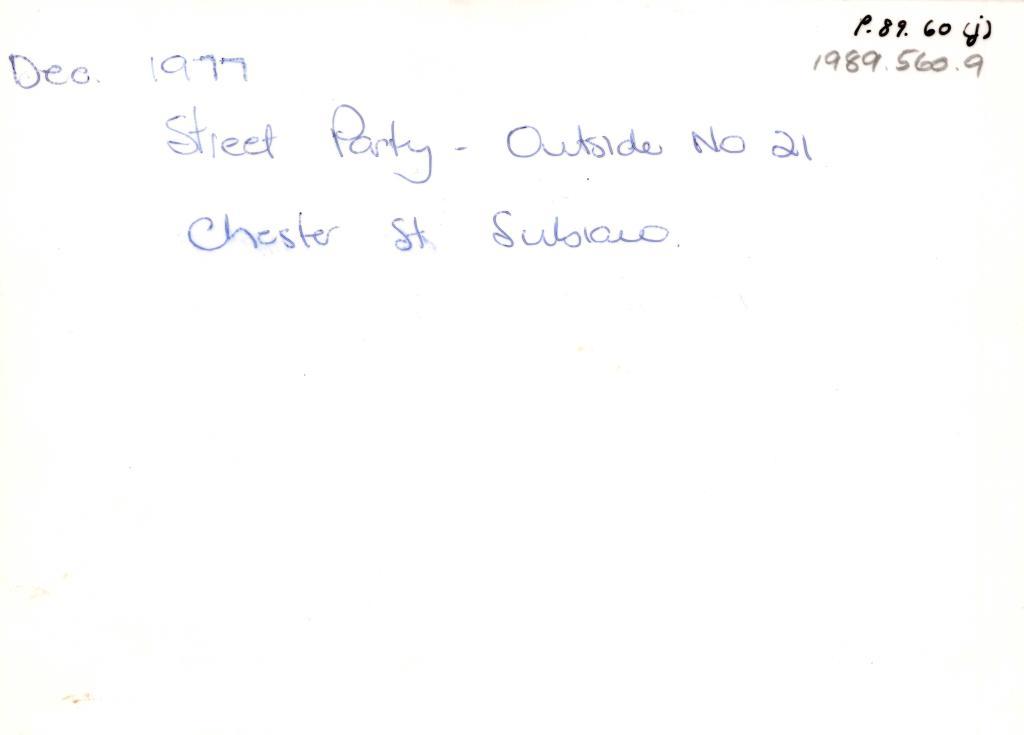 P.89. 60 (j)
1989.560.9
Dec. 1977
Street Party - Outside No 21
Chester St Subiaco.